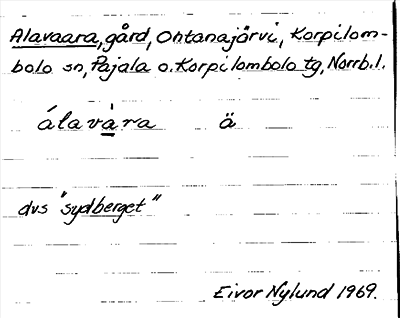 Alavaara, gård, Ohtanajärvi, Korpilom-
bolo sn, Pajala o. Korpilombolo tg, Norrb.l.
álavàra ä
dvs "sydberget"
Eivor Nylund 1969.